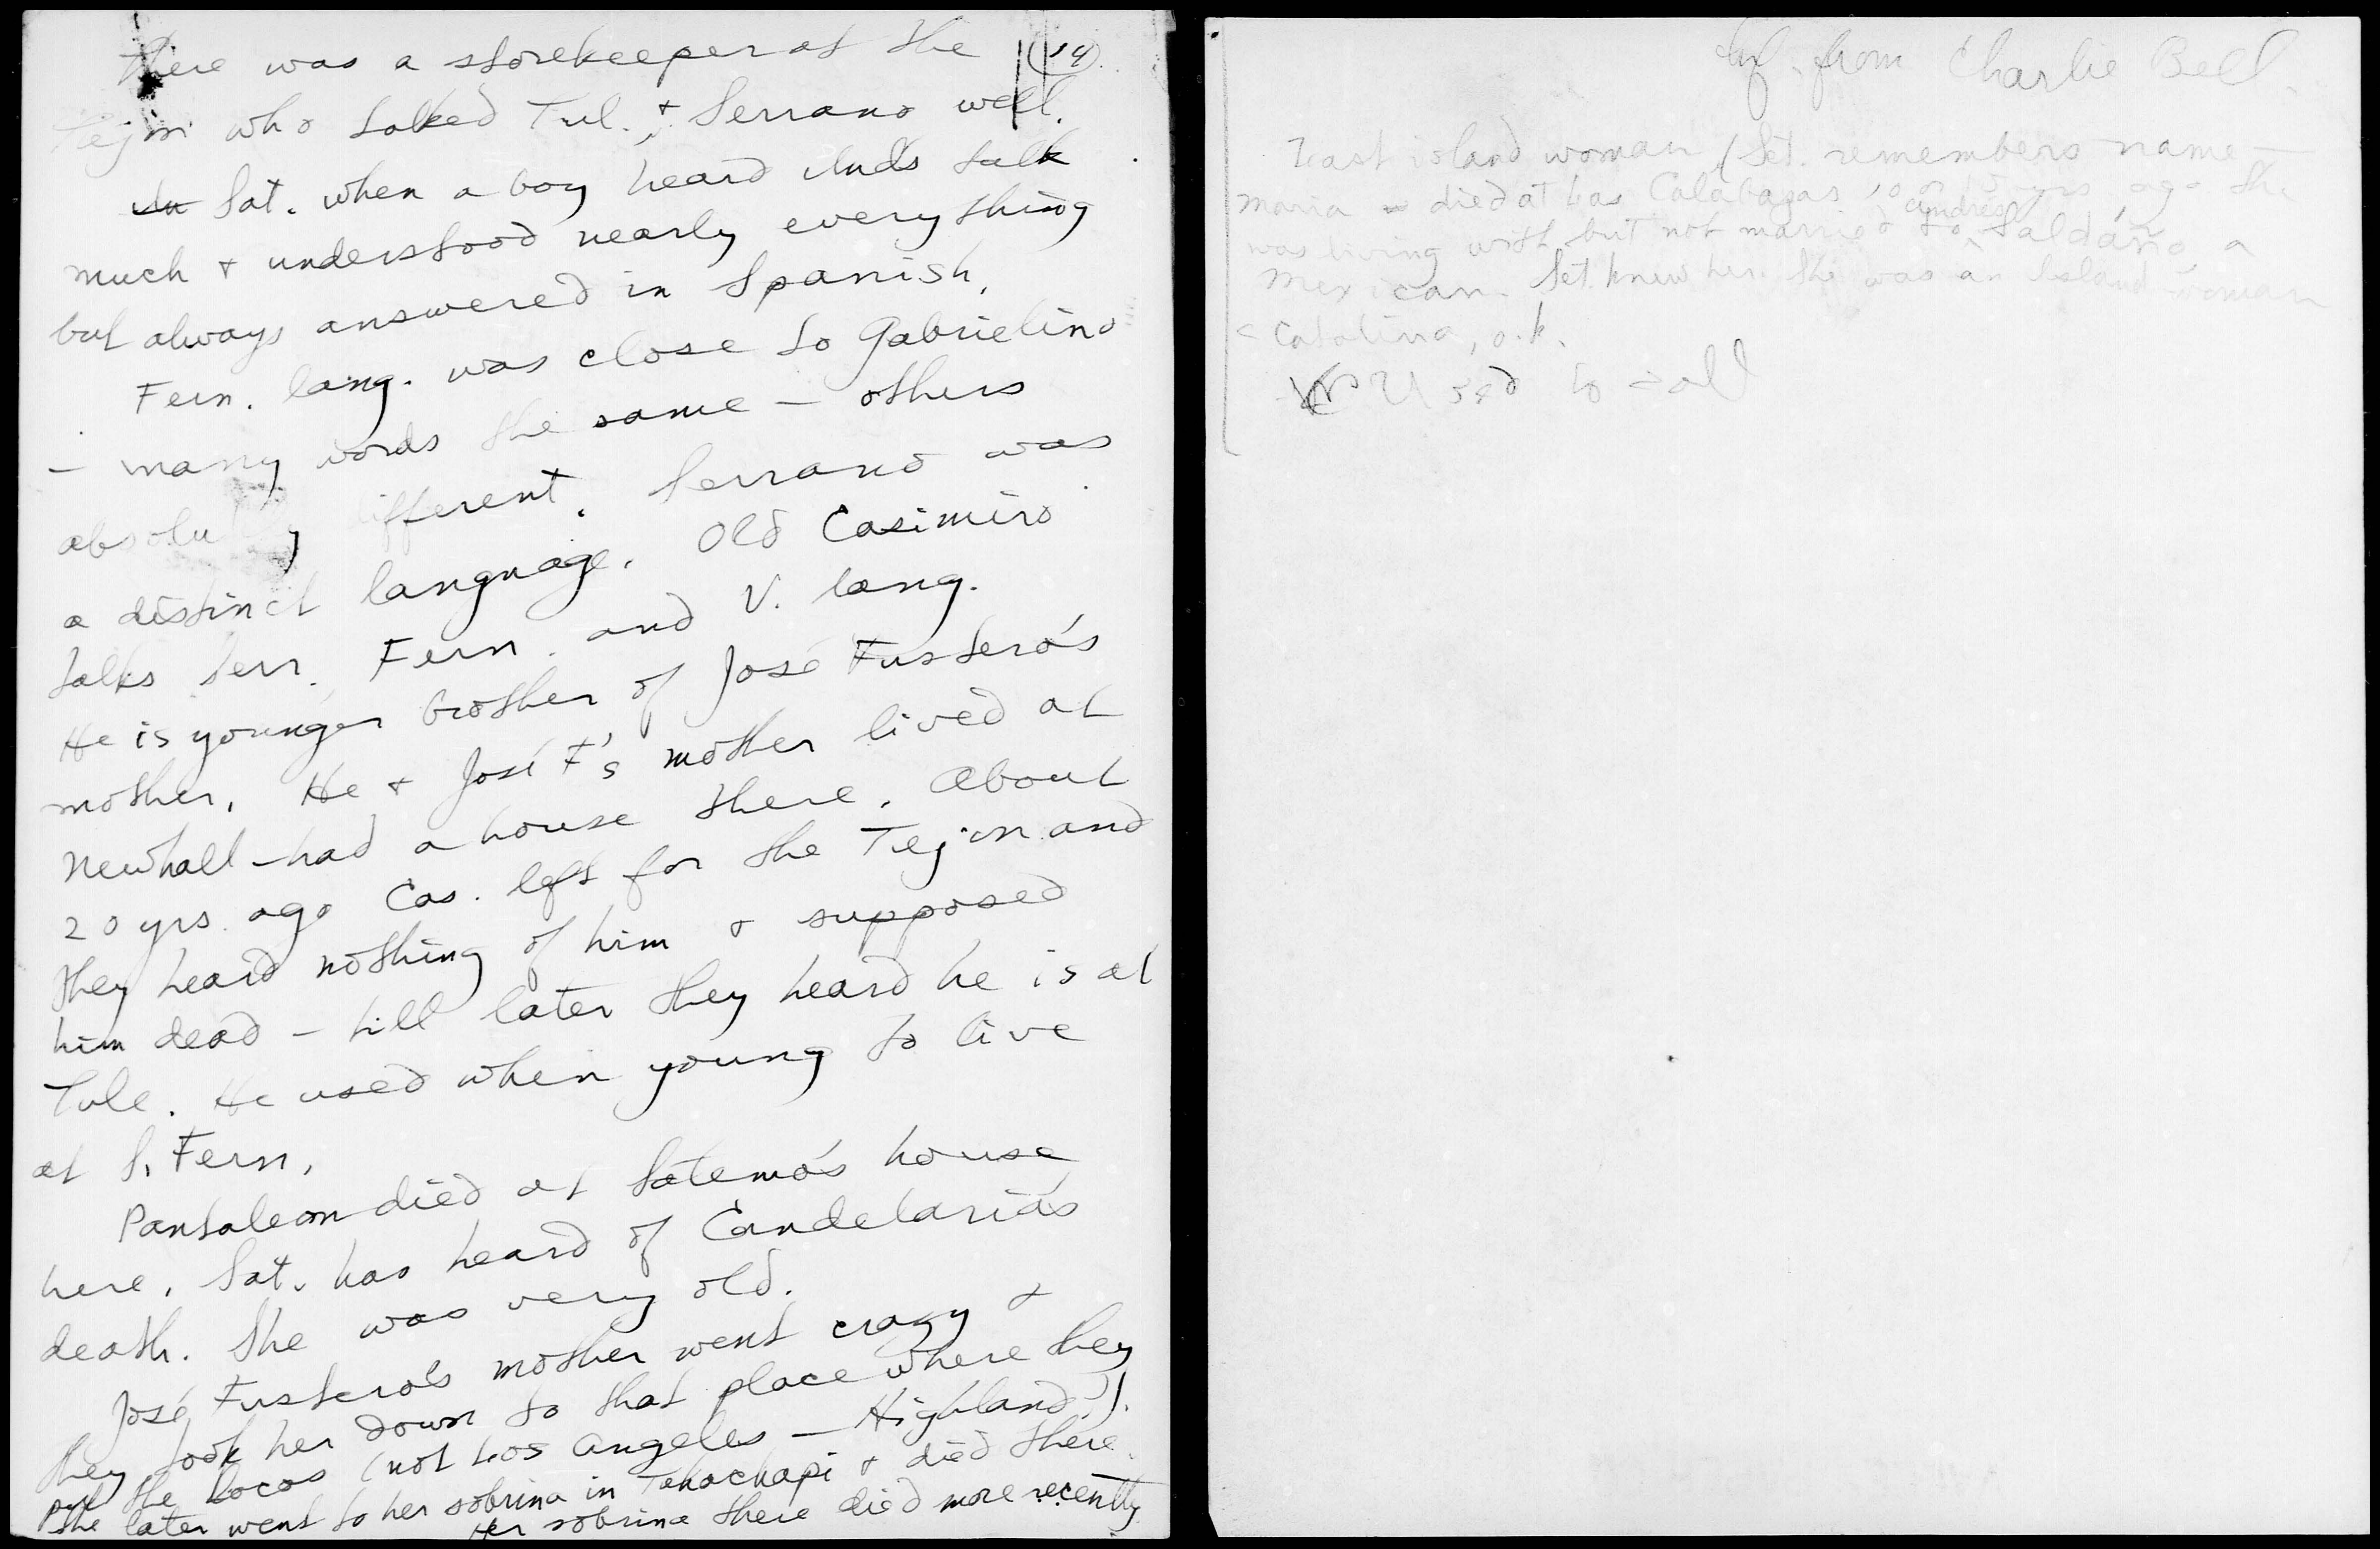 (14)
There was a storekeeper at the
Tejon who talked Tul. & Serrano well.
Sat. when a boy heard Inds talk
much & understood nearly everything
but always answered in Spanish.
Fern. lang. was close to Gabrielino
— many words the same — others
absolutely different. Serrano was
a distinct language. Old Casimiro
talks Serr. Fern. and V. lang.
He is younger brother of José Fustero's
mother. He & José F's mother lived at
Newhall — had a house there. About
20 yrs. ago Cas. left for the Tejon and
they heard nothing of him & supposed
him dead — till later they heard he is at
Tule. He used when young to live
at S. Fern.
Pantaleon died at Setemo's house
here. Sat. has heard of Candelaria's
death. She was very old.
José Fustero's mother went crazy &
they took her down to that place where they
put the locos (not Los Angeles — Highland?).
She later went to her sobrina in Tehachapi & died there.
Her sobrina there died more recently
Inf. from Charlie Bell.
Last island woman (Set. remembers name —
Maria — died at Las Calabazas 10 or 15 yrs ago. She
was living with but not married to Andres Saldaño, a
Mexican. Set. knew her. She was an Island woman
< Catalina, o.k.
Used to call